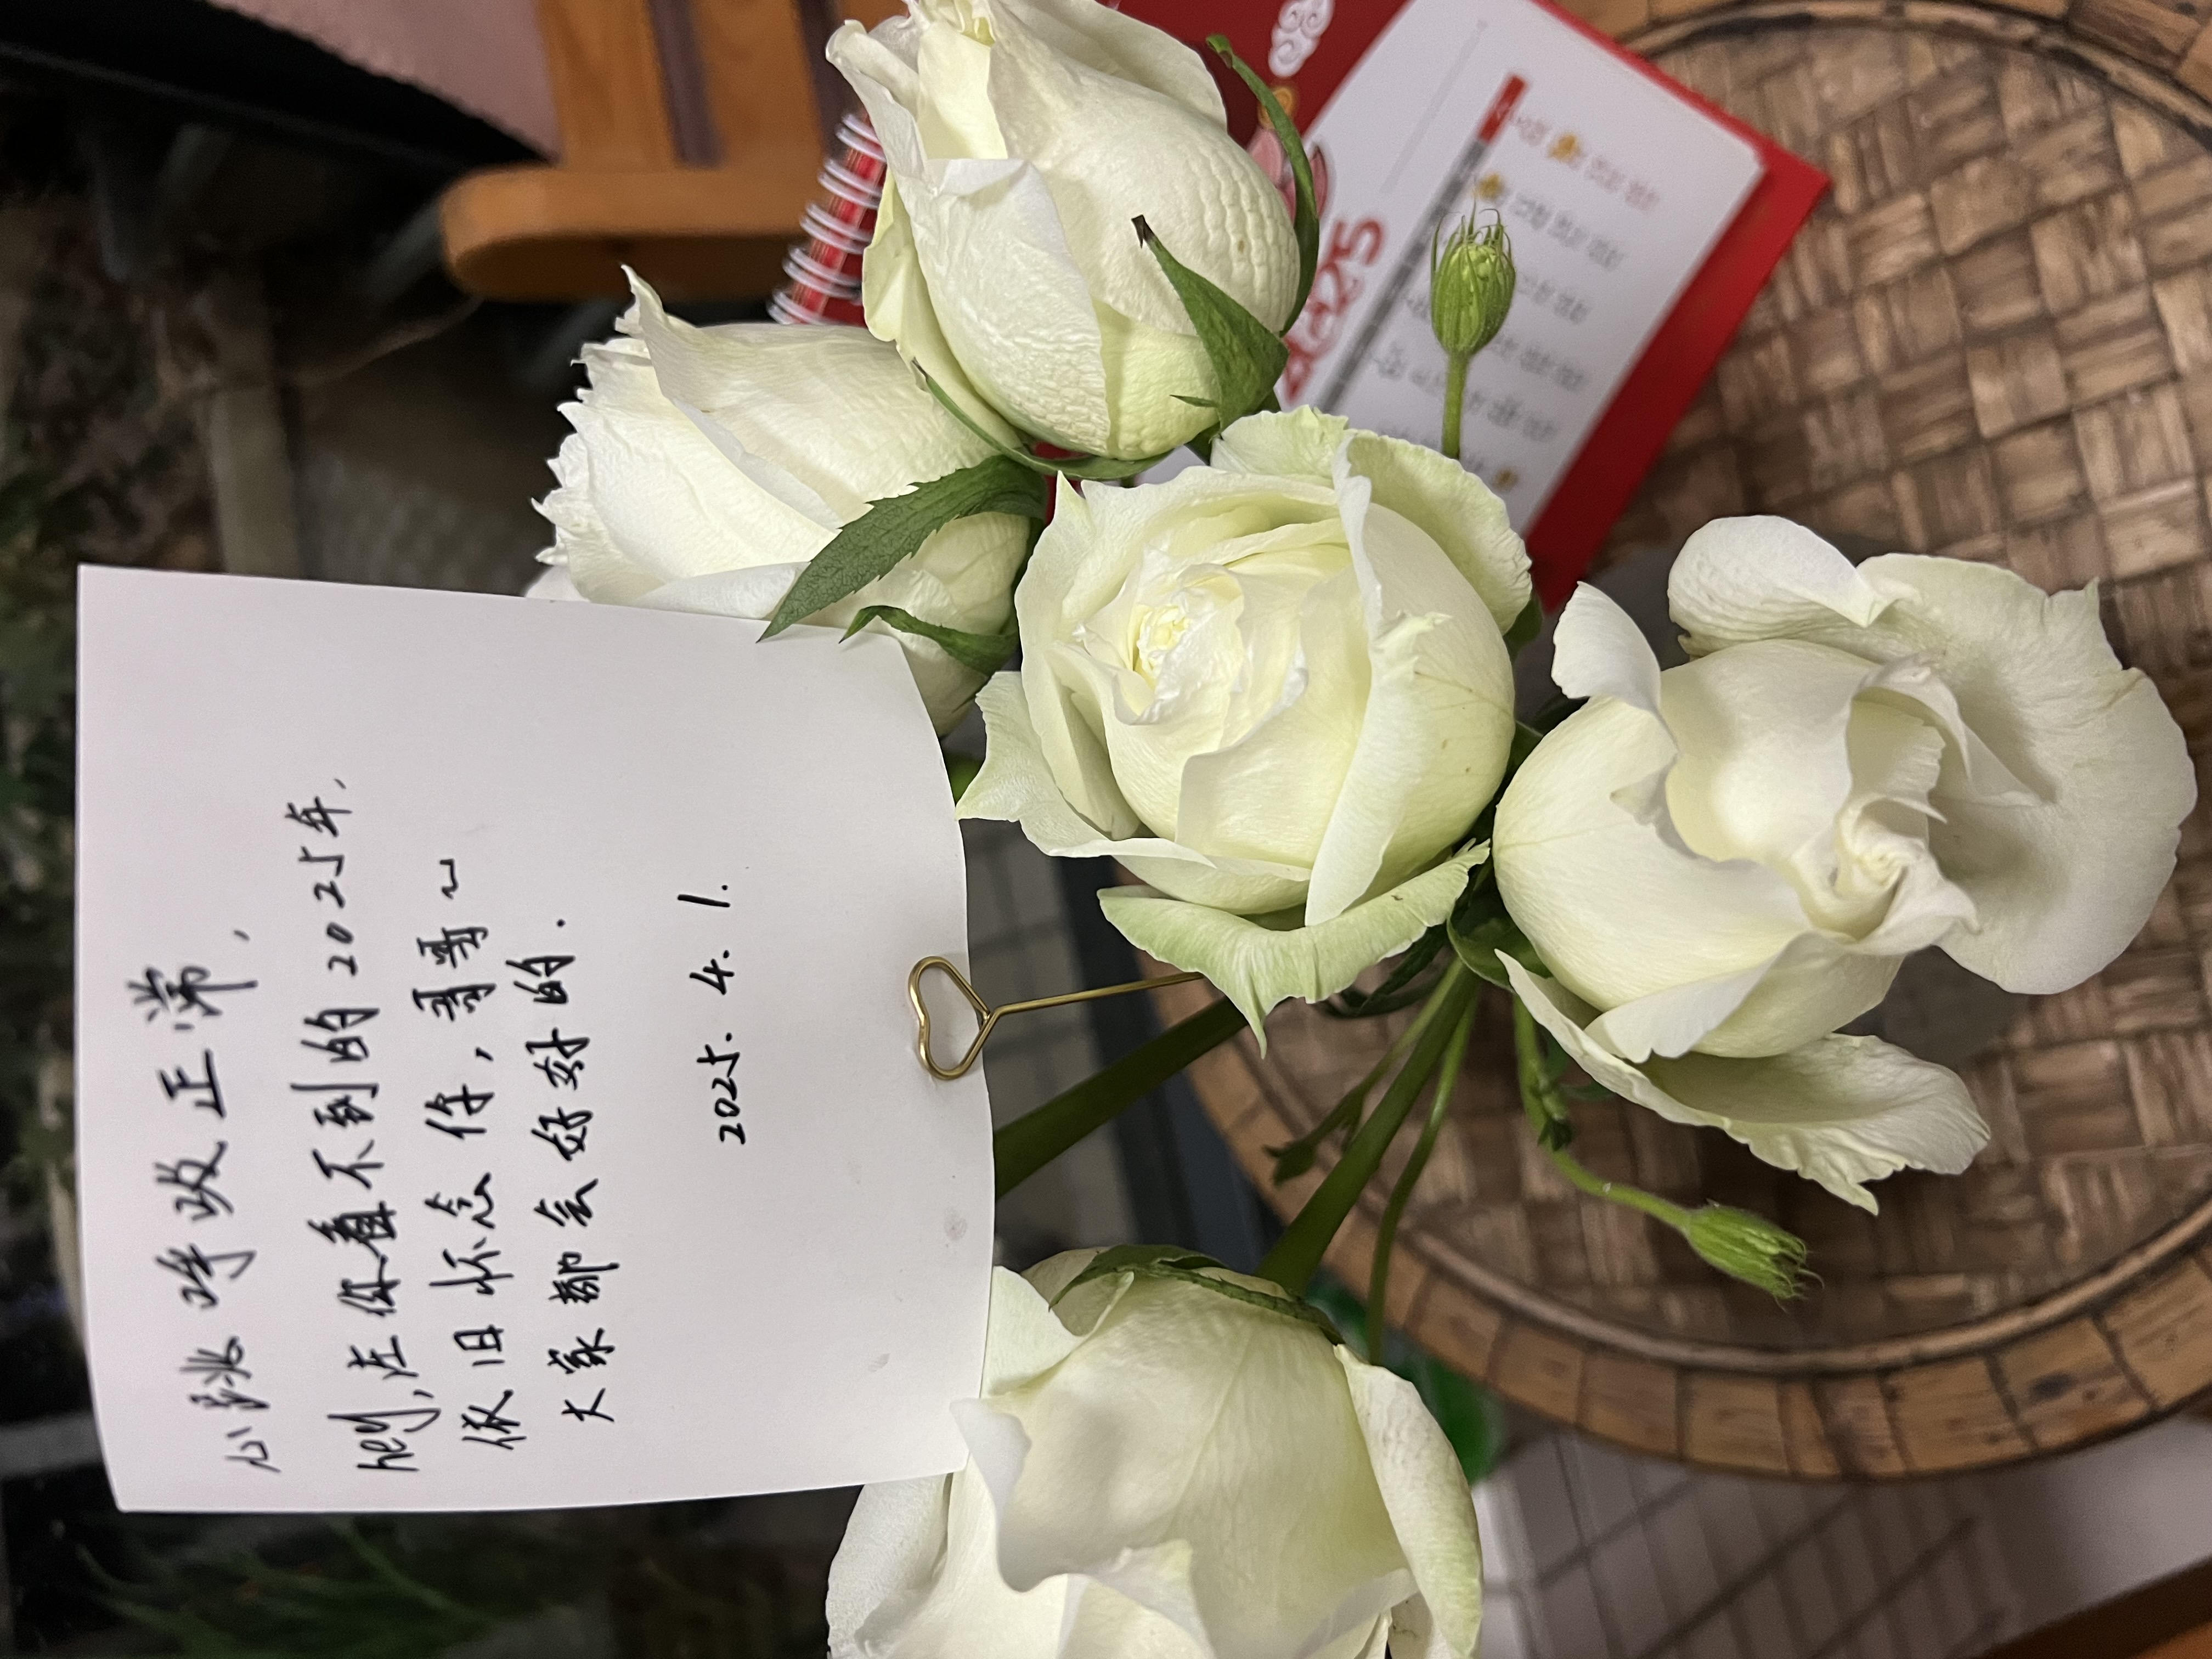 心跳呼吸正常,
hey,在你看不到的2025年,
依旧怀念你,哥哥~
大家都会好好的.
2025.4.1.
2025